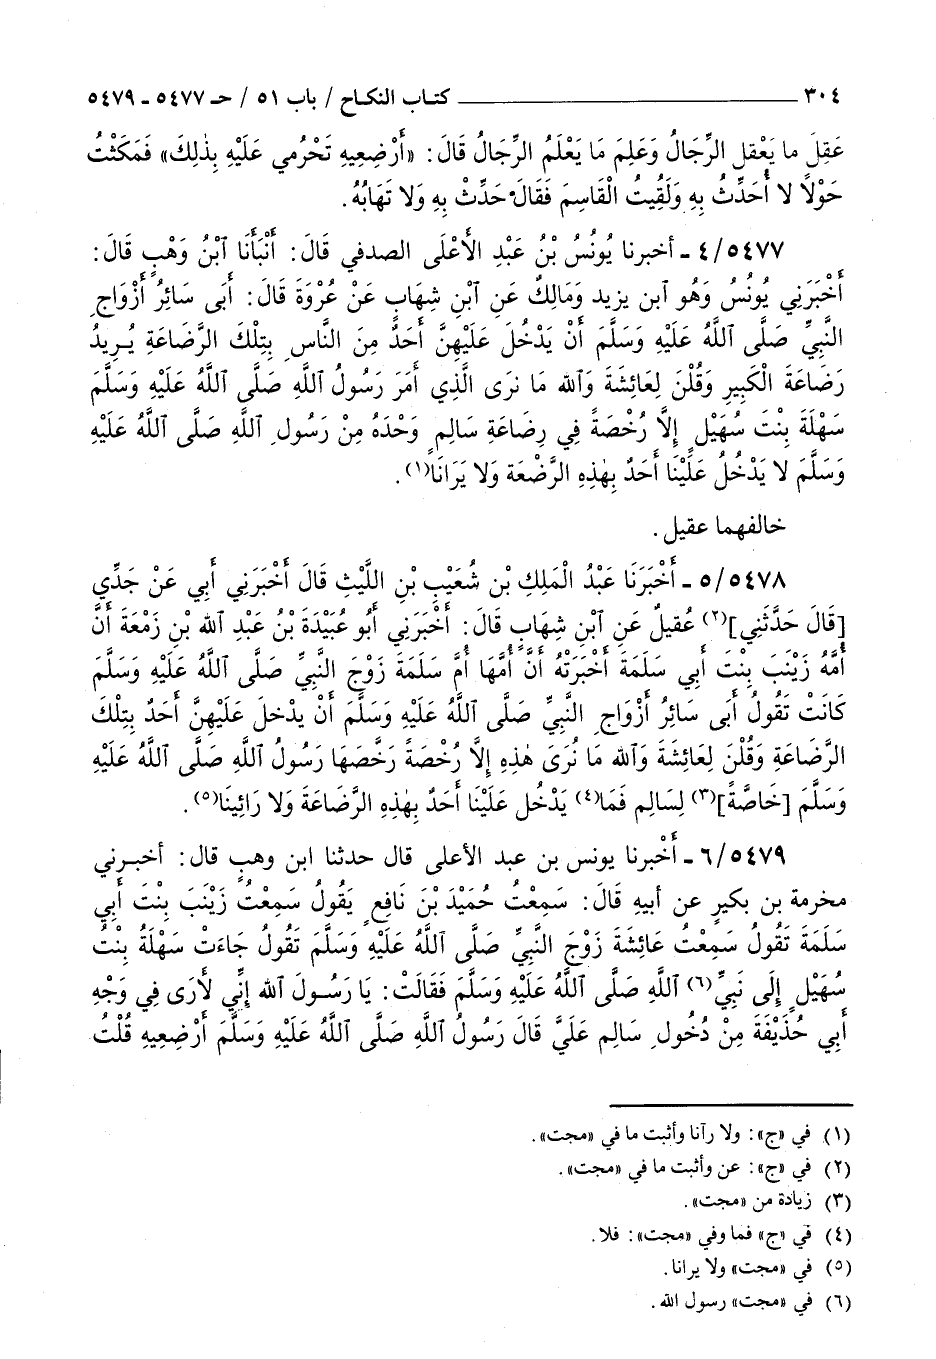 ٣٠٤ ــــــــــ كتاب النكاح / باب ٥١ / حـ ٥٤٧٧ ـ ٥٤٧٩
عَقِلَ ما يَعْقل الرِّجَالُ وَعَلِمَ مَا يَعْلَمُ الرِّجَالُ قَالَ: «أَرْضِعِيهِ تَحْرُمي عَلَيْهِ بِذٰلِكَ» فَمَكَثْتُ
حَوْلاً لا أُحَدِّثُ بِهِ وَلَقِيتُ الْقَاسِمَ فَقَالَ حَدِّثْ بِهِ وَلا تَهَابُهُ.
٤/٥٤٧٧ ـ أخبرنا يُونُسُ بْنُ عَبْدِ الأَعْلَى الصدفي قَالَ: أَنْبَأَنَا ٱبْنُ وَهْبٍ قَالَ:
أَخْبَرَنِي يُونُسُ وَهُو ٱبن يزيد وَمَالِكٌ عَنِ ٱبْنِ شِهَابٍ عَنْ عُرْوَةَ قَالَ: أَبَى سَائِرُ أَزْوَاجِ
النَّبِيِّ صَلَّى ٱللَّهُ عَلَيْهِ وَسَلَّمَ أَنْ يَدْخُلَ عَلَيْهِنَّ أَحَدٌ مِنَ النَّاسِ بِتِلْكَ الرَّضَاعَةِ يُرِيدُ
رَضَاعَةَ الْكَبِيرِ وَقُلْنَ لِعَائِشَةَ وَٱلله مَا نرَى الَّذِي أَمَرَ رَسُولُ ٱللَّهِ صَلَّى ٱللَّهُ عَلَيْهِ وَسَلَّمَ
سَهْلَةَ بِنْتَ سُهَيْلٍ إِلاَّ رُخْصَةً فِي رِضَاعَةِ سَالِمٍ وَحْدَهُ مِنْ رَسُولِ ٱللَّهِ صَلَّى ٱللَّهُ عَلَيْهِ
وَسَلَّمَ لا يَدْخُلُ عَلَيْنَا أَحَدٌ بِهٰذِهِ الرَّضْعَة وَلا يَرَانَا(١).
خالفهما عقيل.
٥/٥٤٧٨ ـ أَخْبَرَنَا عَبْدُ الْمَلِكِ بْن شُعَيْبِ بْنِ اللَّيْثِ قَالَ أَخْبَرَنِي أَبِي عَنْ جَدِّي
[قَالَ حَدَّثَنِي](٢) عُقيلٌ عَنِ ٱبْنِ شِهَابٍ قَالَ: أَخْبَرَنِي أَبُو عُبَيْدَةَ بْنُ عَبْدِ ٱلله بْنِ زَمْعَةَ أَنَّ
أُمَّهُ زَيْنَبَ بِنْتَ أَبِي سَلَمَةَ أَخْبَرَتْهُ أَنَّ أُمَّهَا أُمَّ سَلَمَةَ زَوْجَ النَّبِيِّ صَلَّى ٱللَّهُ عَلَيْهِ وَسَلَّمَ
كَانَتْ تَقُولُ أَبَى سَائِرُ أَزْوَاجِ النَّبِيِّ صَلَّى ٱللَّهُ عَلَيْهِ وَسَلَّمَ أَنْ يدْخلَ عَلَيْهِنَّ أَحَدٌ بِتِلْكَ
الرَّضَاعَةِ وَقُلْنَ لِعَائِشَةَ وَٱلله مَا نُرَى هٰذِهِ إِلاَّ رُخْصَةً رَخَّصَهَا رَسُولُ ٱللَّهِ صَلَّى ٱللَّهُ عَلَيْهِ
وَسَلَّمَ [خَاصَّةً](٣) لِسَالِمٍ فَمَا(٤) يَدْخُل عَلَيْنَا أَحَدٌ بِهٰذِهِ الرَّضَاعَةَ وَلا رَائِينَا(٥).
٦/٥٤٧٩ ـ أَخْبرنا يونس بن عبد الأعلى قال حدثنا ابن وهبٍ قال: أخبرني
مخرمة بن بكيرٍ عن أبيه قَالَ: سَمِعْتُ حُمَيْدَ بْنَ نَافِعٍ يَقُولُ سَمِعْتُ زَيْنَبَ بِنْتَ أَبِي
سَلَمَةَ تَقُولُ سَمِعْتُ عَائِشَةَ زَوْجَ النَّبِيِّ صَلَّى ٱللَّهُ عَلَيْهِ وَسَلَّمَ تَقُولُ جَاءَتْ سَهْلَةُ بِنْتُ
سُهَيْلٍ إِلَى نَبِيِّ(٦) ٱللَّهِ صَلَّى ٱللَّهُ عَلَيْهِ وَسَلَّمَ فَقَالَتْ: يَا رَسُولَ ٱلله إِنِّي لأَرَى فِي وَجْهِ
أَبِي حُذَيْفَةَ مِنْ دُخُولِ سَالِمٍ عَلَيَّ قَالَ رَسُولُ ٱللَّهِ صَلَّى ٱللَّهُ عَلَيْهِ وَسَلَّمَ أَرْضِعِيهِ قُلْتُ
(١) في «ج»: ولا رآنا وأثبت ما في «مجت».
(٢) في «ج»: عن وأثبت ما في «مجت».
(٣) زيادة من «مجت».
(٤) في «ج» فما وفي «مجت»: فلا.
(٥) في «مجت» ولا يرانا.
(٦) في «مجت» رسول الله.